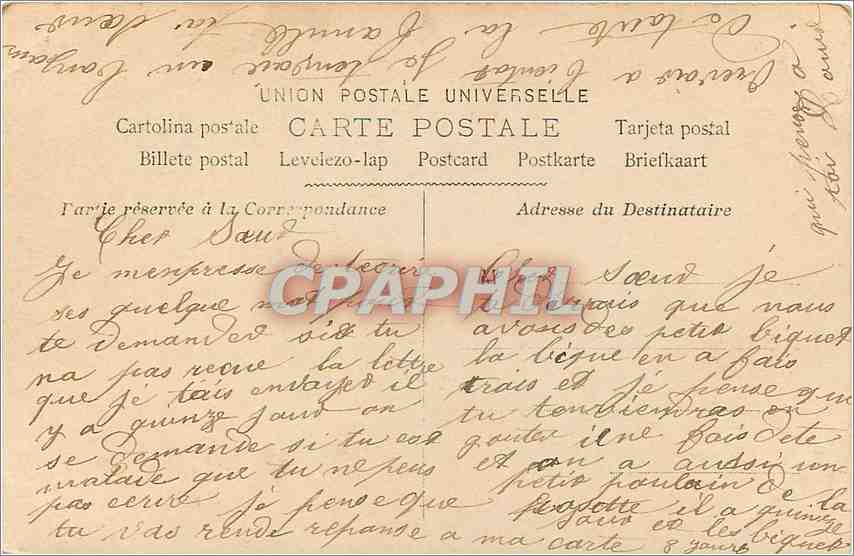 UNION POSTALE UNIVERSELLE
Cartolina postale CARTE POSTALE Tarjeta postal
Billete postal Levelezo-lap Postcard Postkarte Briefkaart
Partie réservée à la Correspondance
Adresse du Destinataire
Cher Sœur
Je menpresse de tecrir
ses quelque mot pour
te demander si tu
na pas reçue la lettre
que je tais envoyer il
y a quinze jour on
se demande si tu est
malade que tu ne peus
pas ecrire je pense que
tu vas rende reponse a ma carte
Cher sœur je
te dirais que nous
avons des petit biquet
la bique en a fais
trois et je pense que
tu tenviendras en
gouter il ne fais dete
et on a aussi un
petit poulain de la
il a quinze
jour et les biquet
8 jours
qui pense a
toi
revois a bientot je tembrasse
toute la famille ta sœur
CPAPHIL